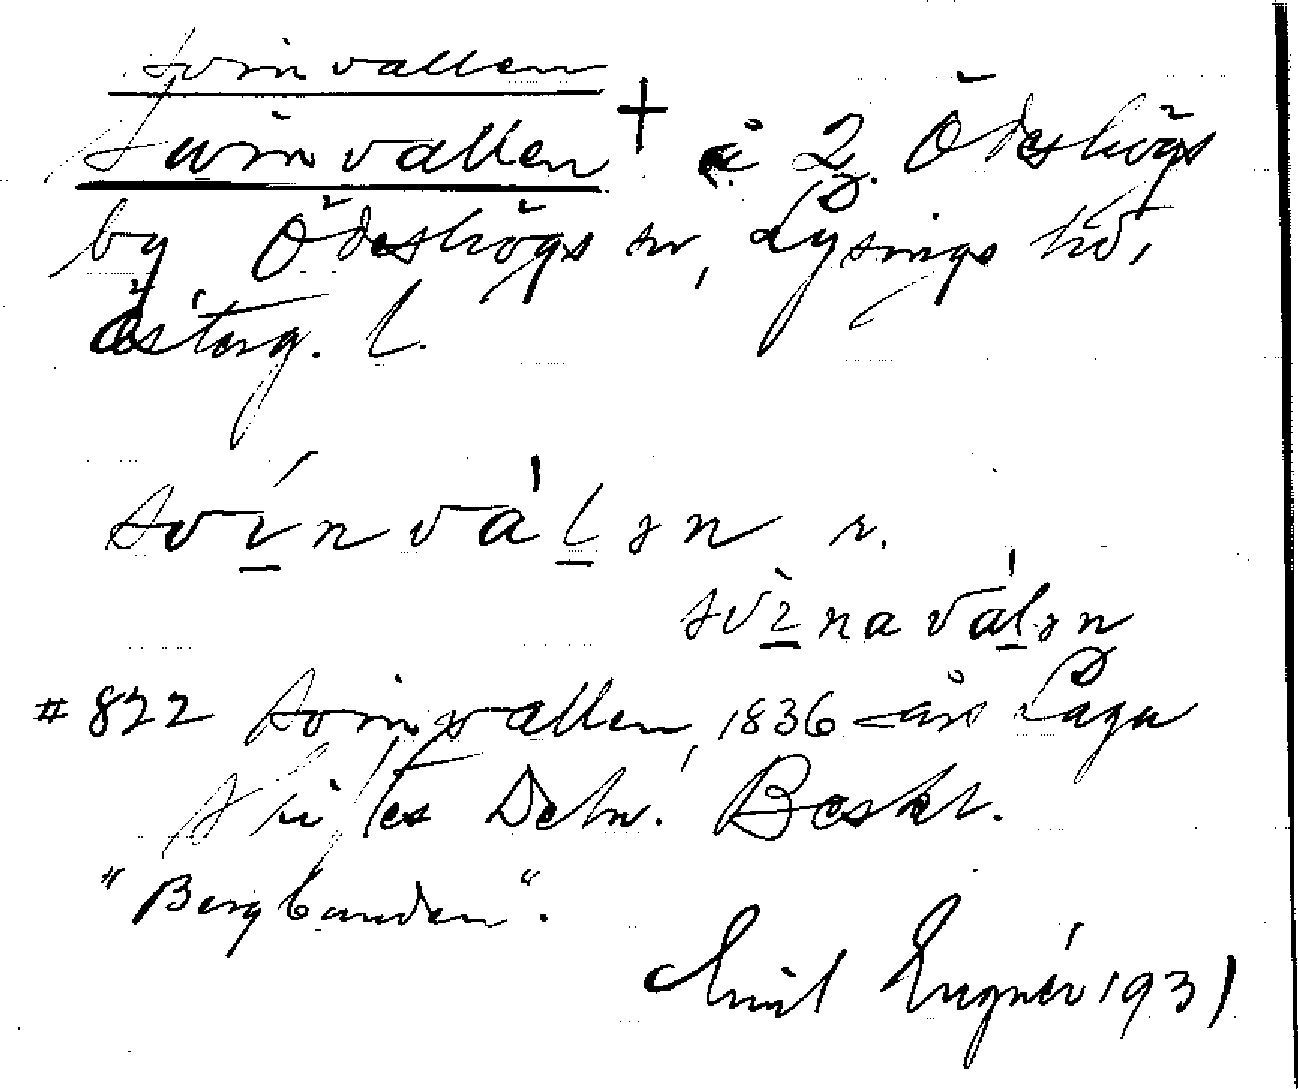 Svinvallen
Svinvallen + å Z. Ödeshögs
by Ödeshögs sn, Lysings hd,
Östérg. l.
svínvàlən r.
svìnavàlən
# 822 Svinvallen, 1836 års Laga
skiftes Debn. Beskr.
"Bergbanden".
Emil Engnér 1931